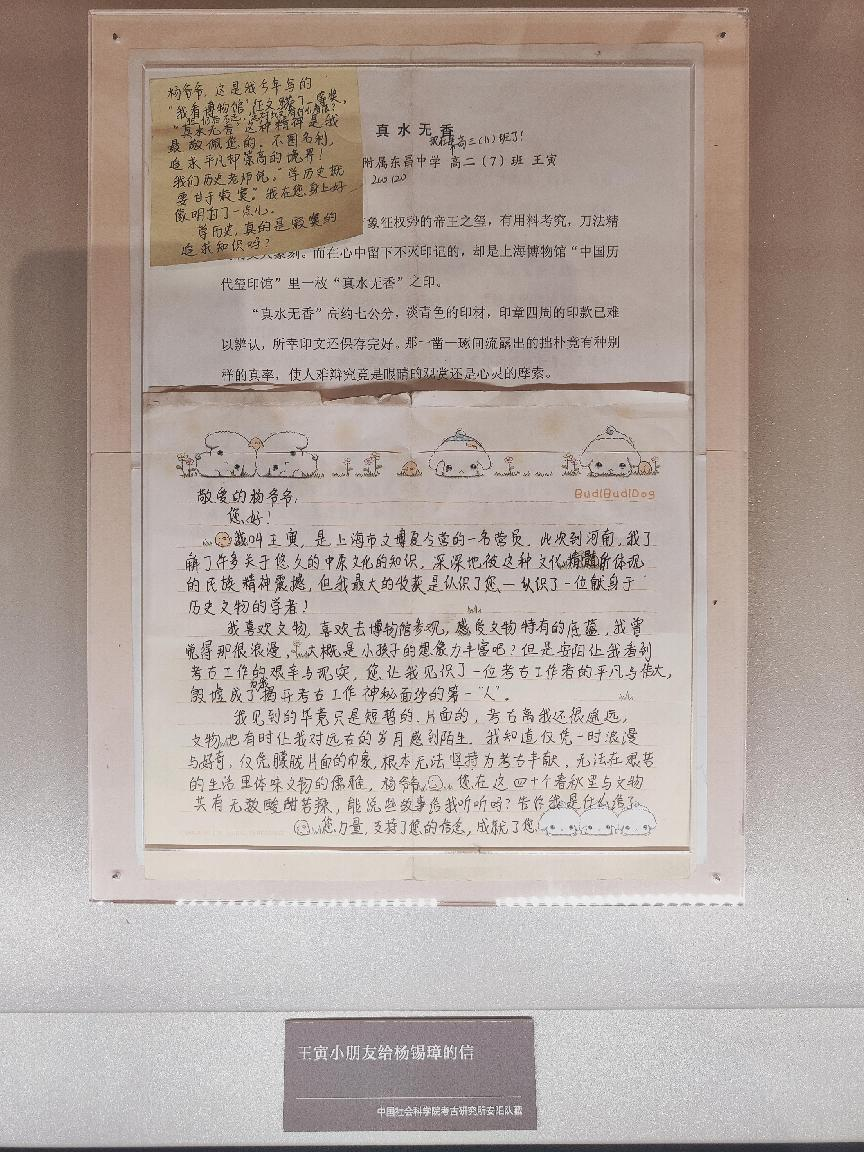 杨爷爷,这是我今年写的
“我看博物馆”征文,获了一等奖,
“真水无香”这种精神是我
最敬佩道的。不图名利,
追求平凡却崇高的境界!
我们历史老师说:“学历史就
要甘于寂寞。”我在您身上好
像明白了一点儿。
学历史,真的是寂寞的
追求知识吗?
真水无香
我在高三(11)班了!
附属东昌中学 高二(7)班 王寅
200120
象征权势的帝王之玺,有用料考究,刀法精
篆刻。而在心中留下不灭印记的,却是上海博物馆“中国历
代玺印馆”里一枚“真水无香”之印。
“真水无香”高约七公分,淡青色的印材,印章四周的印款已难
以辨认,所幸印文还保存完好。那一凿一琢间流露出的拙朴竟有种别
样的真率,使人难辩究竟是眼睛的观赏还是心灵的摩索。
BudiBudiDog
敬爱的杨爷爷,
您好!
我叫王寅,是上海市文博夏令营的一名营员。此次到河南,我了
解了许多关于悠久的中原文化的知识,深深地被这种文化精髓所体现
的民族精神震撼,但我最大的收获是认识了您——认识了一位献身于
历史文物的学者!
我喜欢文物,喜欢去博物馆参观,感受文物特有的底蕴,我曾
觉得那很浪漫,大概是小孩子的想象力丰富吧?但是安阳让我看到
考古工作的艰辛与现实,您让我见识了一位考古工作者的平凡与伟大,
殷墟成了为我揭开考古工作神秘面纱的第一“人”。
我见到的毕竟只是短暂的、片面的,考古离我还很遥远,
文物也有时让我对远古的岁月感到陌生。我知道仅凭一时浪漫
与好奇,仅凭朦胧片面的印象,根本无法坚持为考古奉献,无法在艰苦
的生活里体味文物的儒雅,杨爷爷,您在这四十个春秋里与文物
共有无数酸甜苦辣,能说些故事给我听听吗?告诉我是什么给了
您力量,支持了您的信念,成就了您
王寅小朋友给杨锡璋的信
中国社会科学院考古研究所安阳队藏